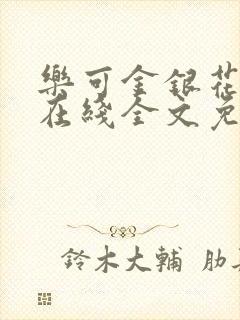 樂可金銀花
在綫全文免
鈴木大輔 肋